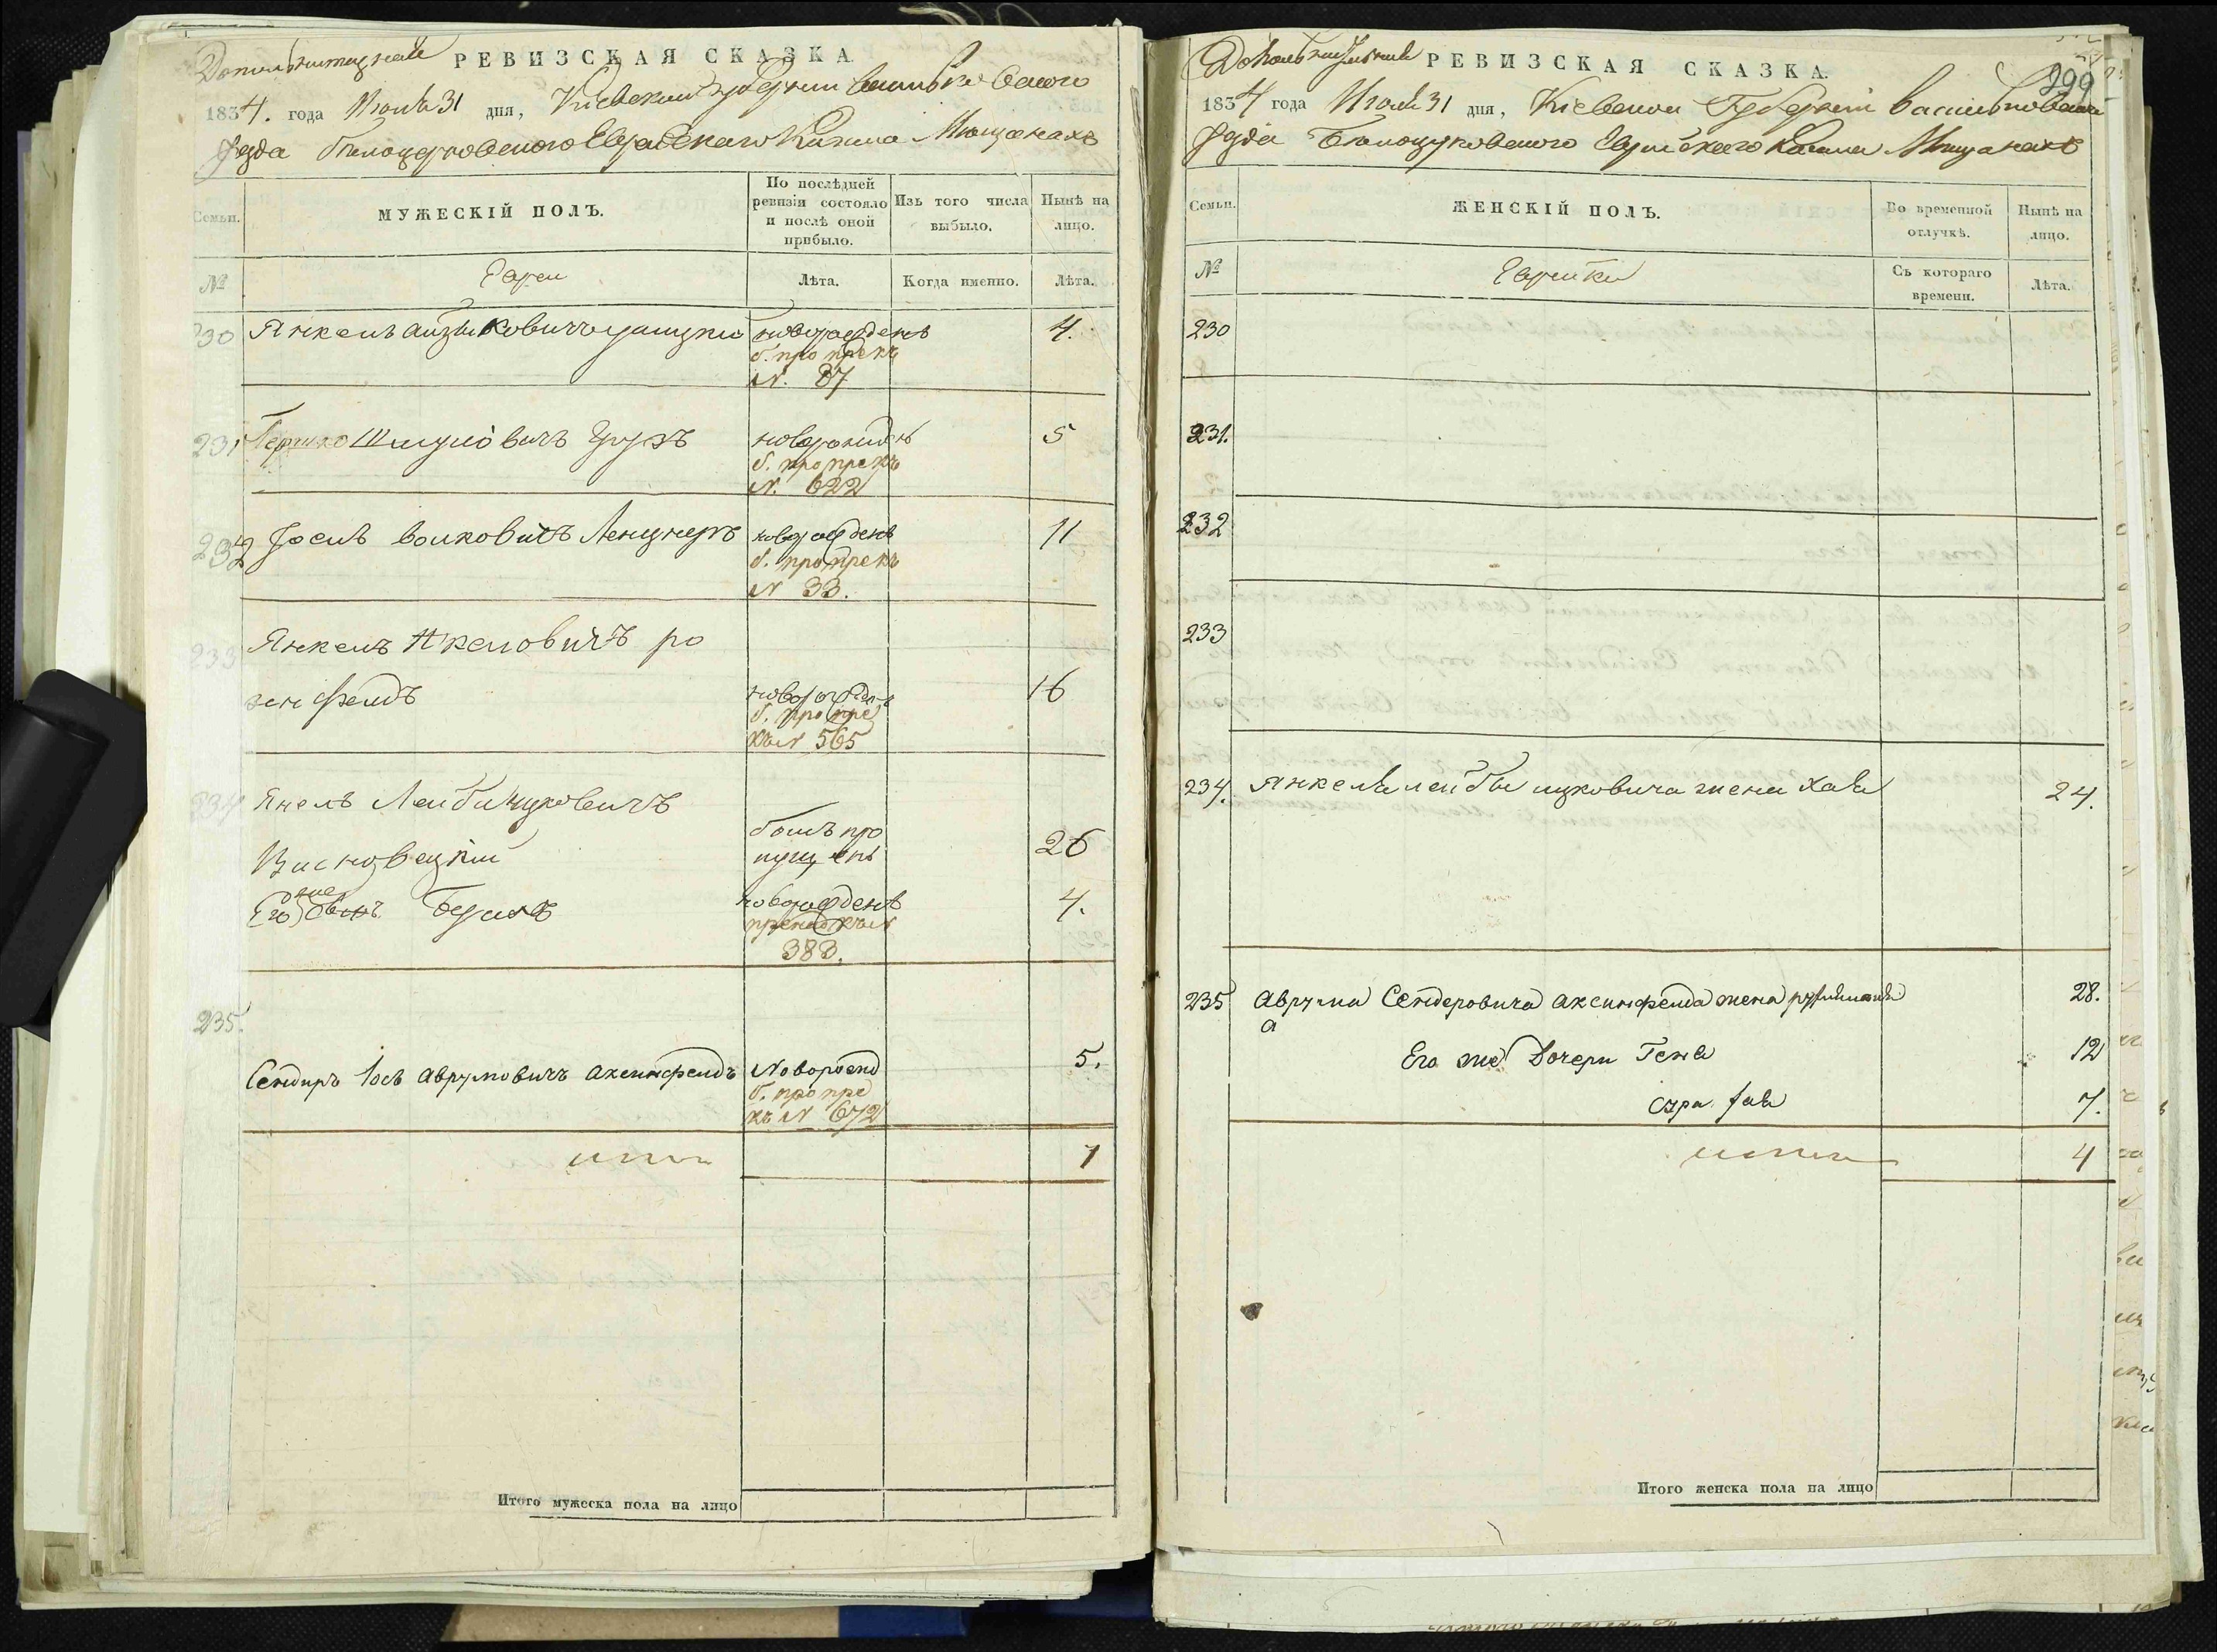 РЕВИЗСКАЯ СКАЗКА.
1834. года Июля 31 дня, Кіевской губерніи Васильковского
уезда Белоцерковского Еврейского Кагала Мещанахъ
Семьи.
МУЖЕСКІЙ ПОЛЪ.
По послѣдней ревизіи состояло и послѣ оной прибыло.
Изъ того числа выбыло.
Нынѣ на лицо.
№
Евреи
Лѣта.
Когда именно.
Лѣта.
230 Янкель Айзиковичъ новорожденъ 4.
б. про прекъ
N. 87
231 Гершко Шмуловичъ новорожденъ 5
б. про прекъ
N. 622
232 Іосль Волковичъ новорожденъ 11
б. про прекъ
N 33.
233 Янкель ро
зенфелдъ новорожден 16
б. про пре
къ N 565
234 Лейби Ицковичъ
Висновецкій былъ про
пущенъ 26
Его же сынъ Берихъ новорожденъ 4.
383.
235.
Сендеръ ІосьАврумовичъ Аксинфелдъ Новорожд 5.
б. про пре
къ N 672
итого 7
Итого мужеска пола на лицо
РЕВИЗСКАЯ СКАЗКА.
299
1834 года Июля 31 дня, Кіевской Губерніи Васильковского
уезда Белоцерковского Еврейского Кагала Мещанахъ
Семьи.
ЖЕНСКІЙ ПОЛЪ.
Во временной отлучкѣ.
Нынѣ на лицо.
№
Еврейки
Съ котораго времени.
Лѣта.
230
231.
232
233
234. Янкеля Лейбы Ицковича жена Хая 24.
235 Аврума Сендеровича Аксинфелда жена 28.
Его же Дочери Геня 12
Сура 7.
итого 4
Итого женска пола на лицо